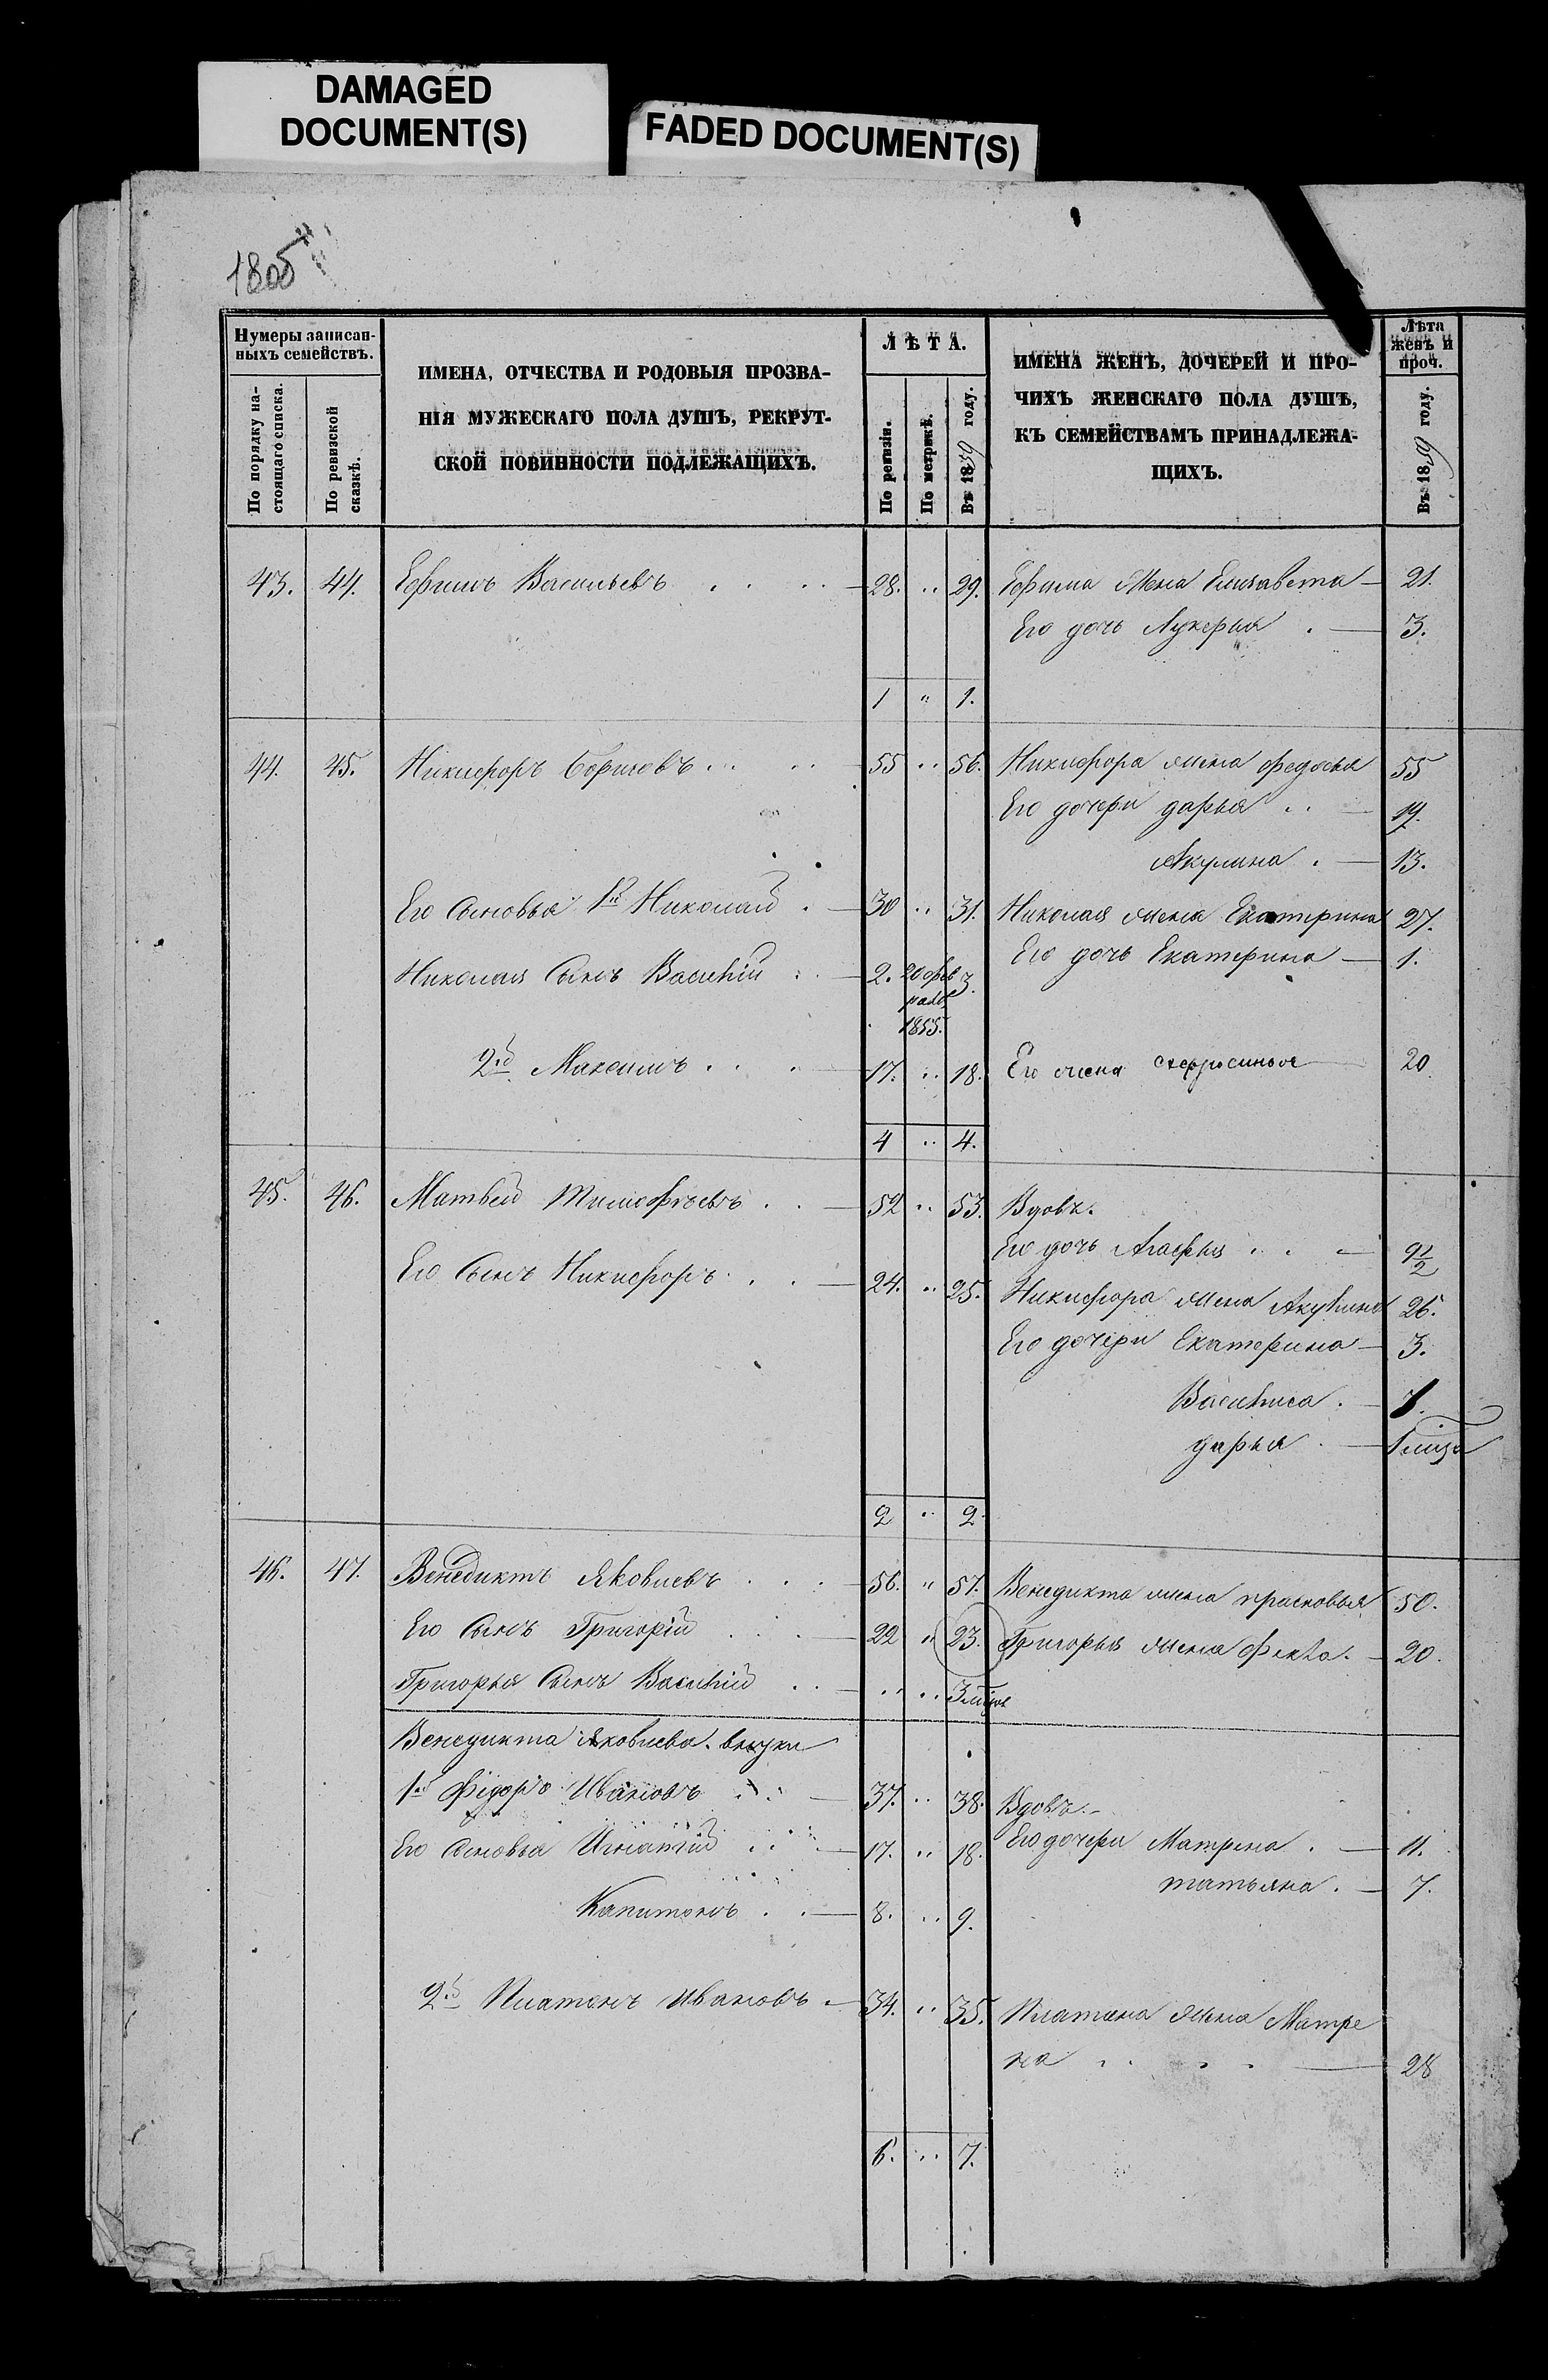 DAMAGED
DOCUMENT(S)
FADED DOCUMENT(S)
Нумеры записан-
ныхъ семействъ.
По порядку на-
стоящаго списка.
По ревизской
сказкѣ.
ИМЕНА, ОТЧЕСТВА И РОДОВЫЯ ПРОЗВА-
НІЯ МУЖЕСКАГО ПОЛА ДУШЪ, РЕКРУТ-
СКОЙ ПОВИННОСТИ ПОДЛЕЖАЩИХЪ.
ЛѢТА.
По ревизіи.
По метрикѣ.
Въ 1859 году.
ИМЕНА ЖЕНЪ, ДОЧЕРЕЙ И ПРО-
ЧИХЪ ЖЕНСКАГО ПОЛА ДУШЪ,
КЪ СЕМЕЙСТВАМЪ ПРИНАДЛЕЖА-
ЩИХЪ.
Лѣта
женъ и
проч.
Въ 1859 году.
43. 44. Ефимъ Васильевъ 28. 29. Ефима жена Елизавета 21.
Его дочь Лукерья 3.
1 1.
44. 45. Никифоръ Борисовъ 55 56. Никифора жена Федосья 55
Его дочери дарья 19.
Акулина 13.
Его Сыновья 1й Николай 30 31. Николая жена Екатерина 27.
Николая Сынъ Василій 2. 20 фев 3. Его дочь Екатерина 1.
раля
1855.
2й Максимъ 17. 18. Его жена 20
4 4.
45. 46. Матвей Тимофѣевъ 52 53. Вдовъ.
Его дочь Агафья 9 1/2
Его Сынъ Никифоръ 24. 25. Никифора жена Акулина 26.
Его дочери Екатерина 3.
Василиса
дарья
2 2.
46. 47. Венедиктъ Яковлевъ 56. 57. Венедикта жена прасковья 50.
Его Сынъ Григорій 22 23. Григорья жена Фекла. 20.
Григорья Сынъ Василій
Венедикта Яковлева. внуки
1й Фёдоръ Ивановъ 37. 38. Вдовъ.
Его Сыновья Игнатій 17. 18. Его дочери Матрена 11.
татьяна. 7.
Капитонъ 8. 9.
2й Платонъ Ивановъ 34. 35. Платона жена Матре
на 28
6. 7.